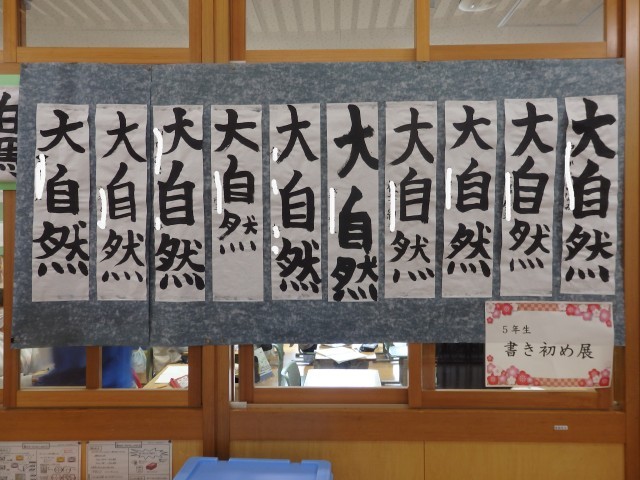 大自然
大自然
大自然
大自然
大自然
大自然
大自然
大自然
大自然
大自然
5年生
書き初め展